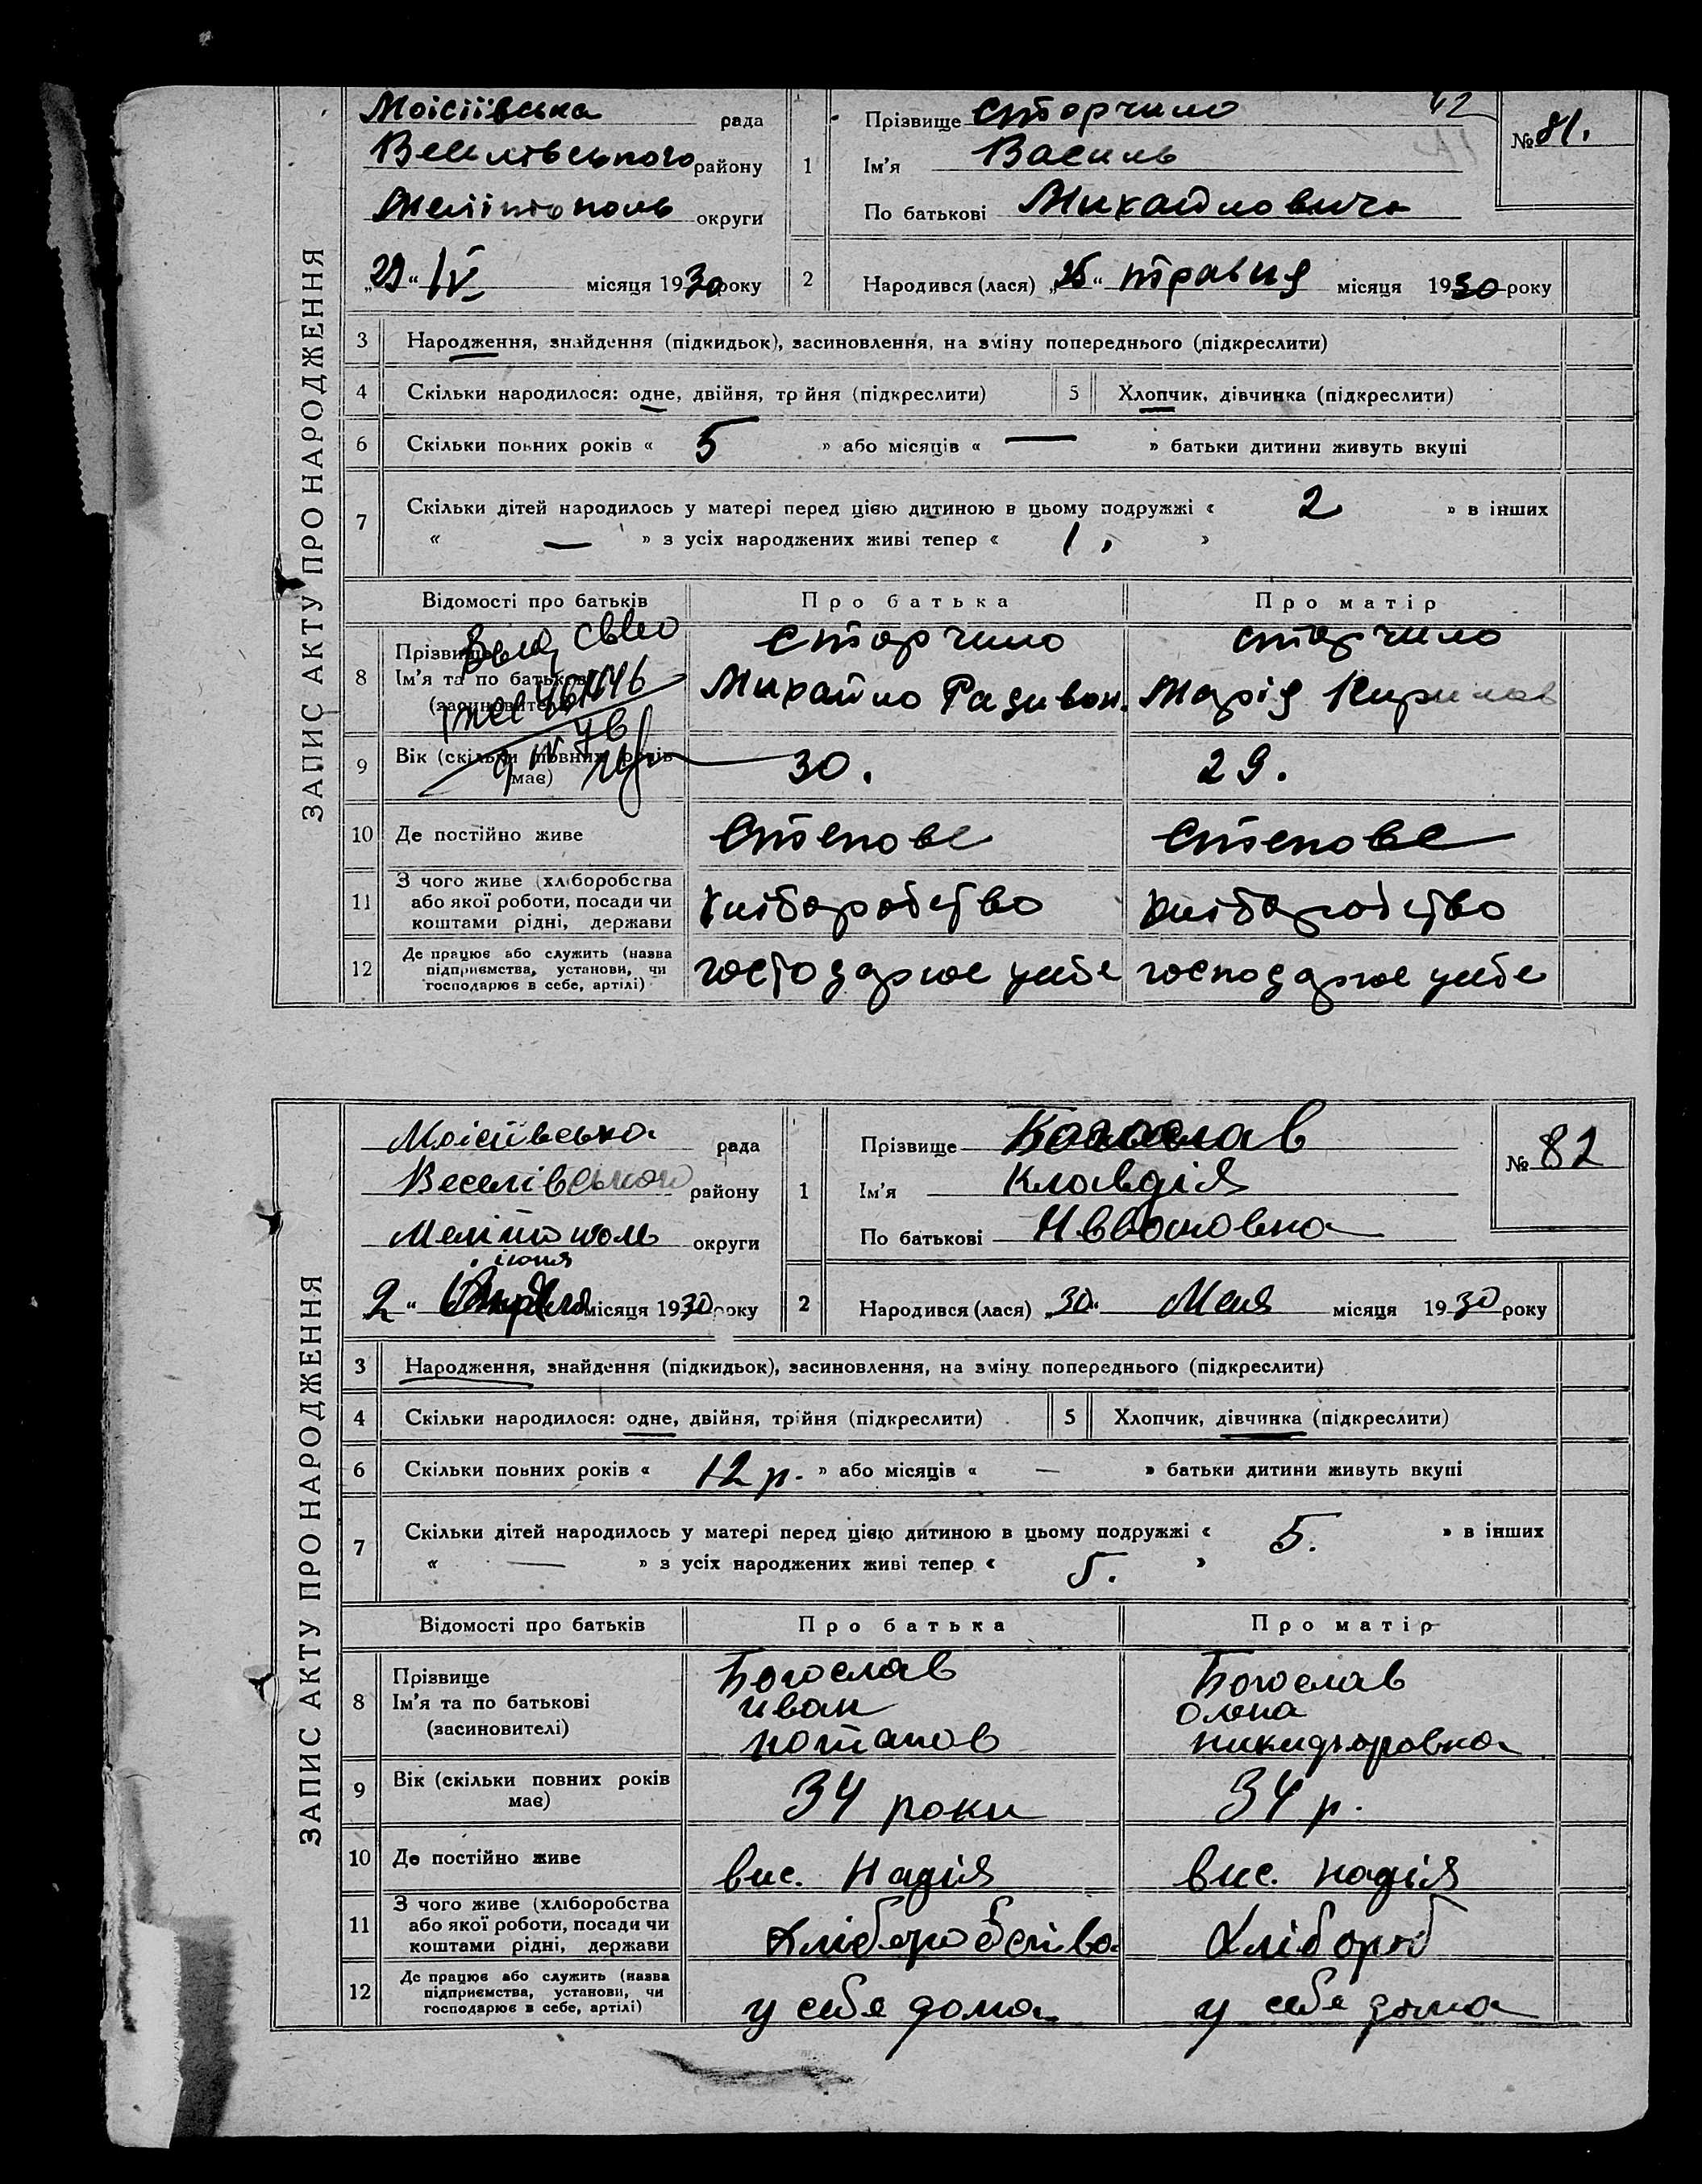 ЗАПИС АКТУ ПРО НАРОДЖЕННЯ
Моісіївська рада
Веселівського району
Мелітополь округи
„29“ IV місяця 1930 року
1 Прізвище Сторчило
Ім'я Василь
По батькові Михайлович
42
№ 81.
2 Народився (лася) „25“ травня місяця 1930 року
3 Народження, знайдення (підкидьок), засиновлення, на зміну попереднього (підкреслити)
4 Скільки народилося: одне, двійня, трійня (підкреслити) 5 Хлопчик, дівчинка (підкреслити)
6 Скільки повних років « 5 » або місяців « — » батьки дитини живуть вкупі
7 Скільки дітей народилось у матері перед цією дитиною в цьому подружжі « 2 » в інших
« — » з усіх народжених живі тепер « 1, »
Відомості про батьків Про батька Про матір
8 Прізвище Сторчило Сторчило
Ім'я та по батькові Михайло Радивон. Марія Кирилов
(засиновителі)
9 Вік (скільки повних років має) 30. 29.
10 Де постійно живе Степове Степове
11 З чого живе (хліборобства
або якої роботи, посади чи хліборобство хліборобство
коштами рідні, держави
12 Де працює або служить (назва
підприємства, установи, чи господарює у себе господарює у себе
господарює в себе, артілі)
ЗАПИС АКТУ ПРО НАРОДЖЕННЯ
Моісіївська рада
Веселівського району
Мелітополь округи
іюня
2 “ місяця 1930 року
1 Прізвище Богослав
Ім'я Клавдія
По батькові Ивановна
№ 82
2 Народився (лася) „30“ Мая місяця 1930 року
3 Народження, знайдення (підкидьок), засиновлення, на зміну попереднього (підкреслити)
4 Скільки народилося: одне, двійня, трійня (підкреслити) 5 Хлопчик, дівчинка (підкреслити)
6 Скільки повних років « 12 р. » або місяців « — » батьки дитини живуть вкупі
7 Скільки дітей народилось у матері перед цією дитиною в цьому подружжі « 5. » в інших
« — » з усіх народжених живі тепер « 5. »
Відомості про батьків Про батька Про матір
8 Прізвище Богослав Богослав
Ім'я та по батькові иван олена
(засиновителі) потапов
9 Вік (скільки повних років має) 34 роки 34 р.
10 Де постійно живе вис. Надія вис. надія
11 З чого живе (хліборобства
або якої роботи, посади чи Хліборобство Хлібороб
коштами рідні, держави
12 Де працює або служить (назва
підприємства, установи, чи у себе дома у себе дома
господарює в себе, артілі)